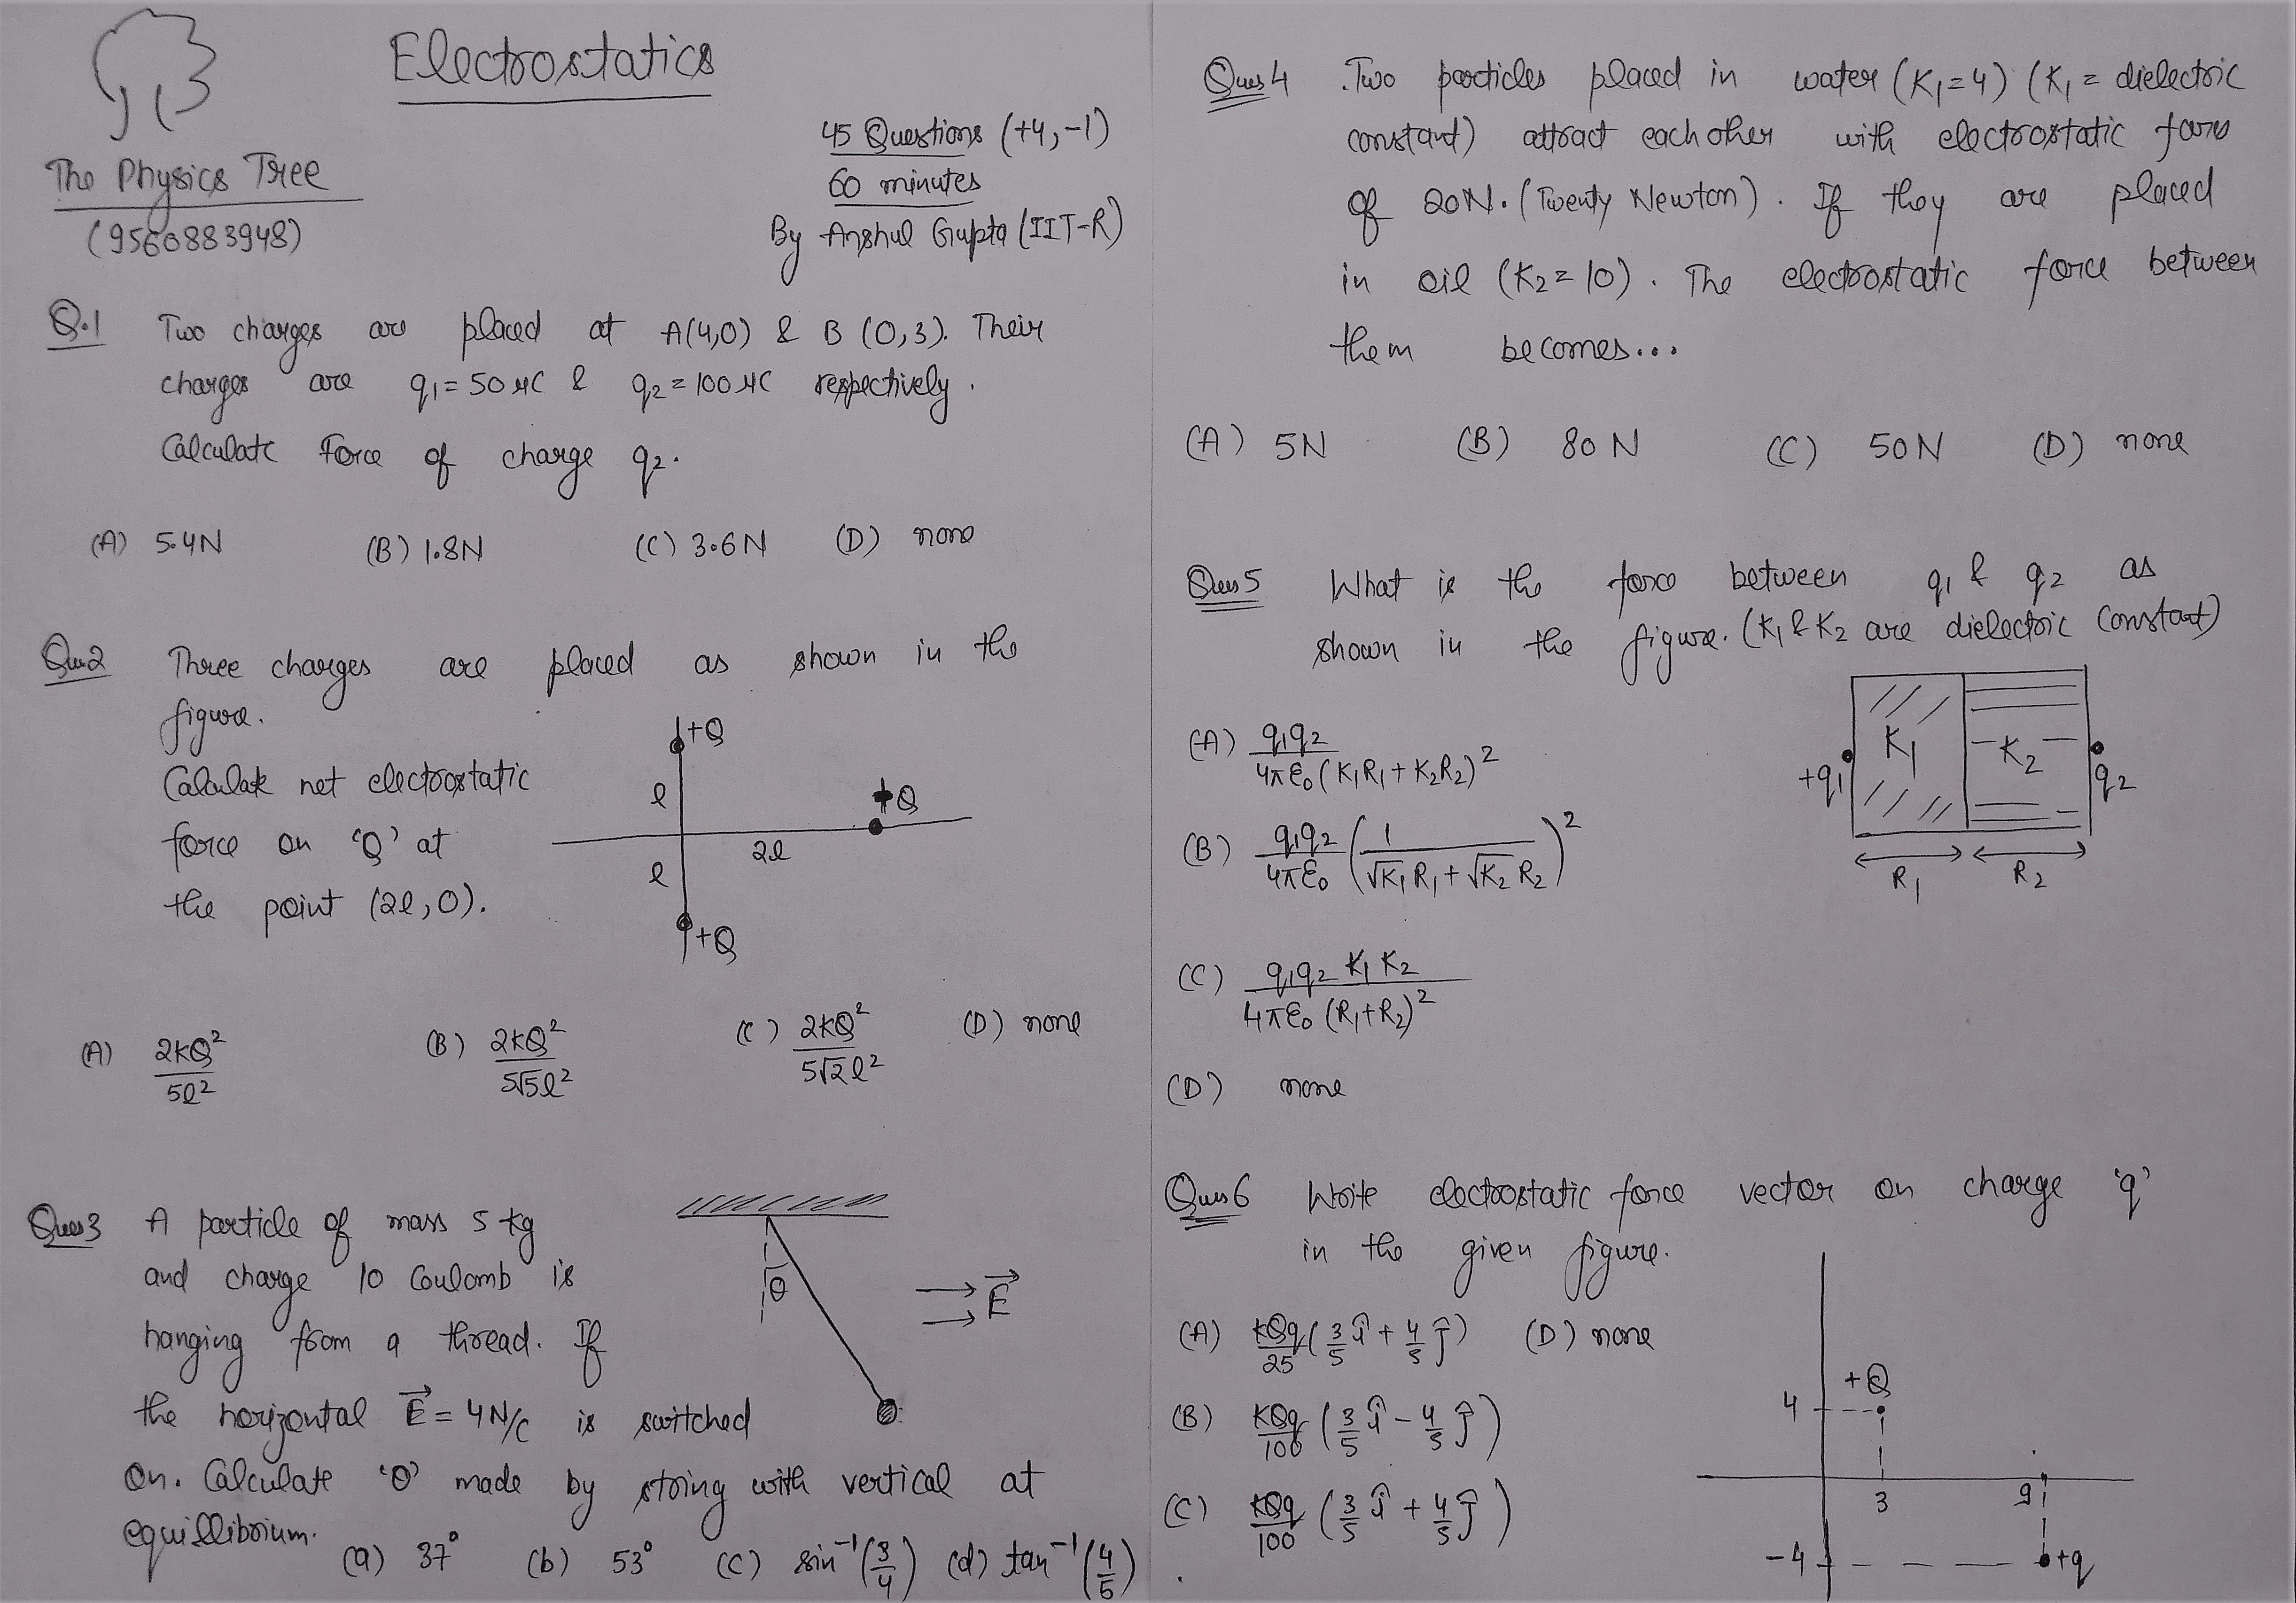 Electrostatics
The Physics Tree
(9560883948)
45 Questions (+4, -1)
60 minutes
By Anshul Gupta (IIT-R)
Q.1 Two charges are placed at A(4,0) & B (0,3). Their
charges are q₁ = 50 μC & q₂ = 100 μC respectively.
Calculate Force of charge q₂.
(A) 5.4N (B) 1.8N (C) 3.6N (D) none
Que2 Three charges are placed as shown in the
figure.
Calculate net electrostatic
force on 'Q' at
the point (2l, 0).
+Q
l
+Q
2l
l
+Q
(A) 2KQ²/5l² (B) 2KQ²/5√5l² (C) 2KQ²/5√2l² (D) none
Ques3 A particle of mass 5 kg
and charge 10 Coulomb is
hanging from a thread. If
the horizontal E⃗ = 4N/C is switched
on. Calculate 'θ' made by string with vertical at
equillibrium.
θ
E⃗
(a) 37° (b) 53° (c) sin⁻¹(3/4) (d) tan⁻¹(4/5)
Ques4 Two particles placed in water (K₁=4) (K₁ = dielectric
constant) attract each other with electrostatic force
of 20N. (Twenty Newton). If they are placed
in oil (K₂ = 10). The electrostatic force between
them becomes...
(A) 5N (B) 80 N (C) 50N (D) none
Ques5 What is the force between q₁ & q₂ as
shown in the figure. (K₁ & K₂ are dielectric Constant)
(A) q₁q₂/4πε₀(K₁R₁ + K₂R₂)²
(B) q₁q₂/4πε₀ (1/√K₁R₁ + √K₂R₂)²
(C) q₁q₂K₁K₂/4πε₀(R₁+R₂)²
(D) none
K₁
K₂
+q₁
q₂
R₁
R₂
Ques6 Write electrostatic force vector on charge 'q'
in the given figure.
(A) KQq/25 (3/5 î + 4/5 ĵ) (D) none
(B) KQq/100 (3/5 î - 4/5 ĵ)
(C) KQq/100 (3/5 î + 4/5 ĵ)
+Q
4
3
9
-4
+q